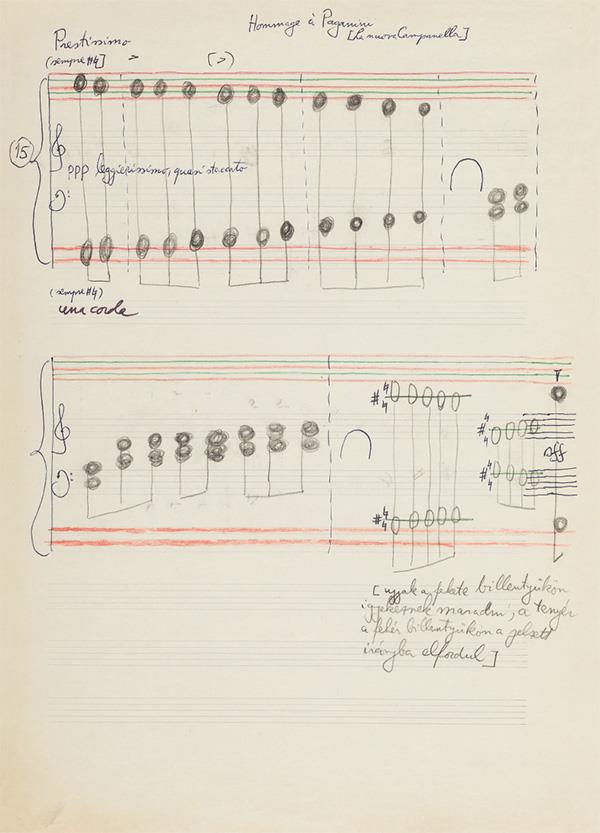 Hommage à Paganini
[La nuova Campanella]
Prestissimo
(sempre #4]
>
(>)
15
ppp leggierissimo, quasi staccato
(sempre #4)
una corda
#4
#4
#4
sff
#4
#4
[ujjak a fekete billentyűkön
igyekeznek maradni, a tenyér
a fehér billentyűkön a
irányba elfordul]